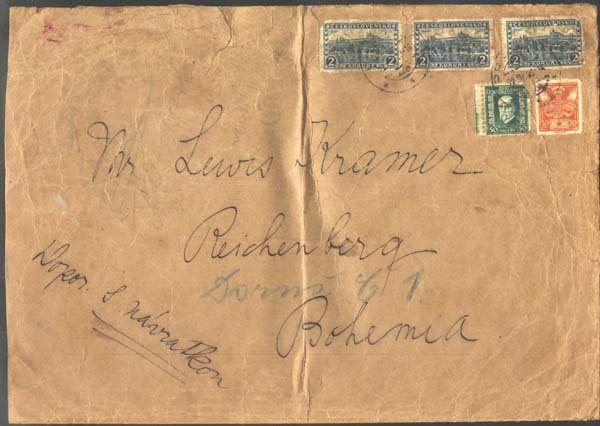 ČESKOSLOVENSKO ČESKOSLOVENSKO ČESKOSLOVENSKO
2 KORUNY 2 2 2 2 2
50 50
Mr Lewis Kramer
Reichenberg
Dornů č 1
Bohemia
Dopor. S návratkou